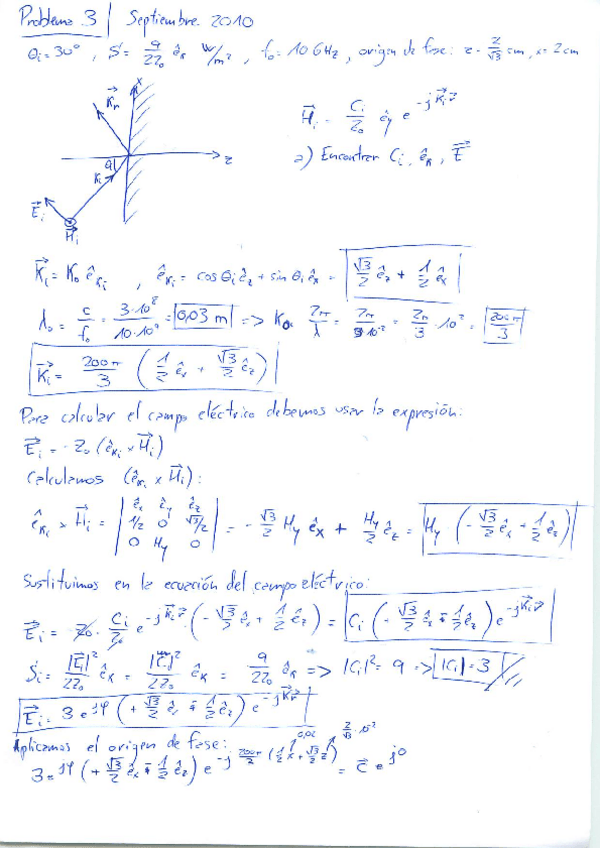 Problema 3 | Septiembre 2010
θi=30º , S⃗ = 9/2Z₀ ê_k W/m² , f₀ = 10 GHz , origen de fase: z = 2/√3 cm, x = 2 cm
x
K⃗r
H⃗i = Ci/Z₀ êy e^-jK⃗i·r⃗
z
a) Encontrar Ci, êk, E⃗
Ki
E⃗i
H⃗i
K⃗i = K₀ êKi , êKi = cosθi êz + sinθi êx = √3/2 êz + 1/2 êx
λ₀ = c/f₀ = 3·10⁸/10·10⁹ = 0,03 m => K₀ = 2π/λ = 2π/3·10⁻² = 2π/3 · 10² = 200π/3
K⃗i = 200π/3 (1/2 êx + √3/2 êz)
Para calcular el campo eléctrico debemos usar la expresión:
E⃗i = -Z₀ (êKi × H⃗i)
Calculamos (êKi × H⃗i):
êKi × H⃗i = | êx êy êz | 1/2 0 √3/2 | 0 Hy 0 | = -√3/2 Hy êx + Hy/2 êz = Hy (-√3/2 êx + 1/2 êz)
Sustituimos en la ecuación del campo eléctrico:
E⃗i = -Z₀ · Ci/Z₀ e^-jK⃗i·r⃗ · (-√3/2 êx + 1/2 êz) = Ci (-√3/2 êx ∓ 1/2 êz) e^-jK⃗i·r⃗
S⃗i = |E⃗i|²/2Z₀ êk = |Ci|²/2Z₀ êk = 9/2Z₀ êk => |Ci|² = 9 => |Ci| = 3
E⃗i = 3 e^jφ (+√3/2 êx ∓ 1/2 êz) e^-jK⃗r⃗
Aplicamos el origen de fase: 0,02 2/√3 · 10⁻²
3 e^jφ (+√3/2 êx ∓ 1/2 êz) e^-j 200π/3 (1/2 x + √3/2 z) = C⃗ e^j0